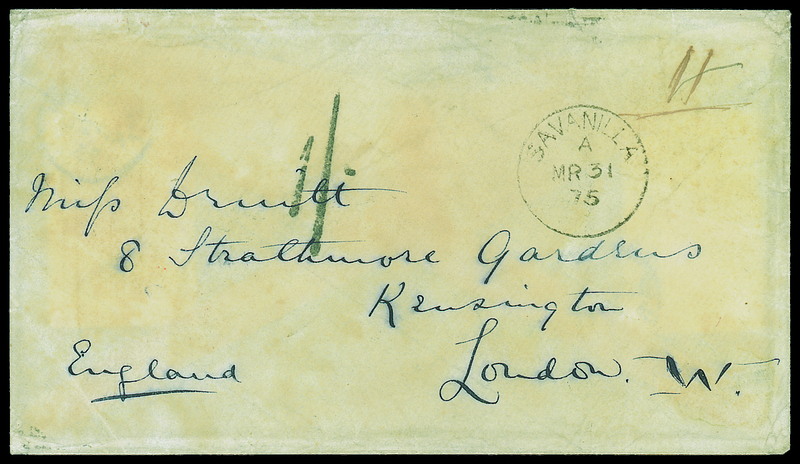 1/-
SAVANILLA
A
MR 31
75
Miss Druitt
8 Strathmore Gardens
Kensington
London. W.
England